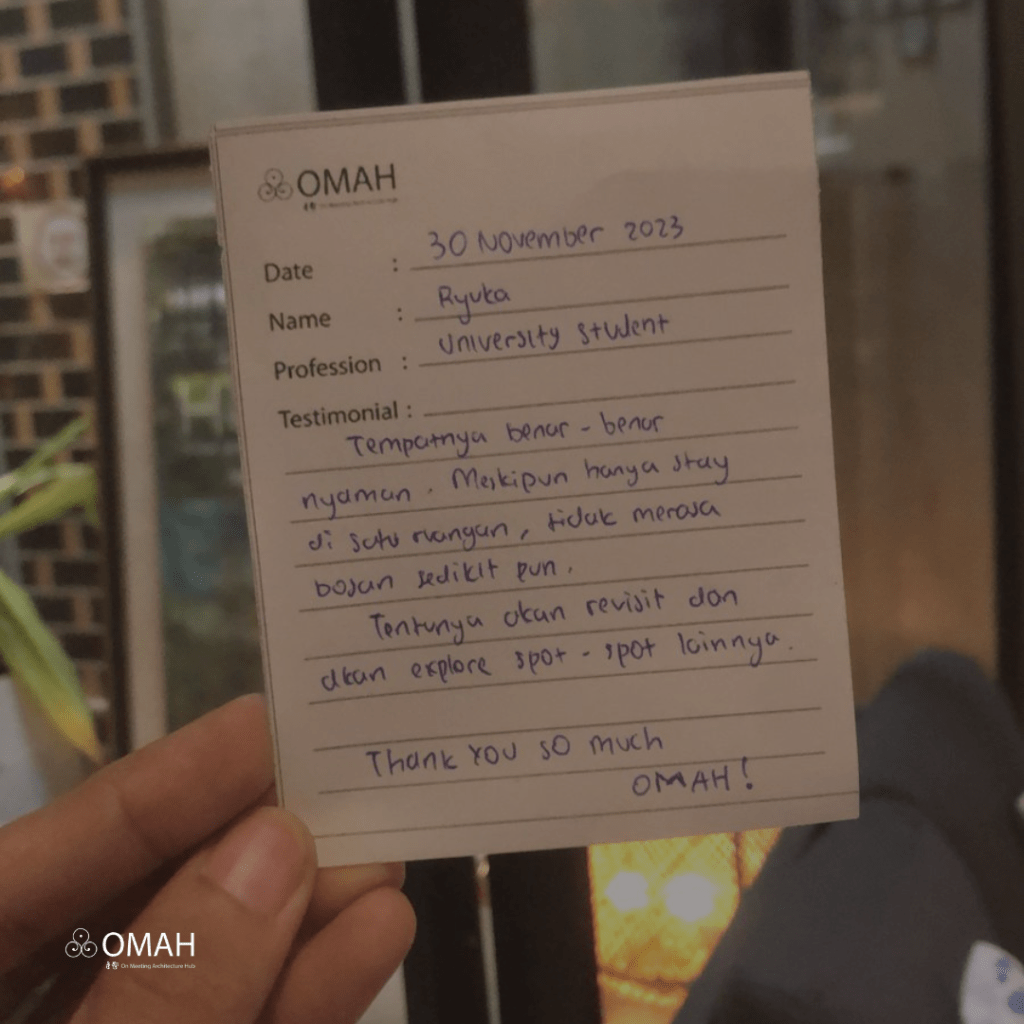 OMAH
On Meeting Architecture Hub
Date : 30 November 2023
Name : Ryuka
Profession : University Student
Testimonial :
Tempatnya benar - benar
nyaman. Meskipun hanya stay
di satu ruangan, tidak merasa
bosan sedikit pun.
Tentunya akan revisit dan
akan explore spot - spot lainnya.
Thank you so much
OMAH!
OMAH
On Meeting Architecture Hub